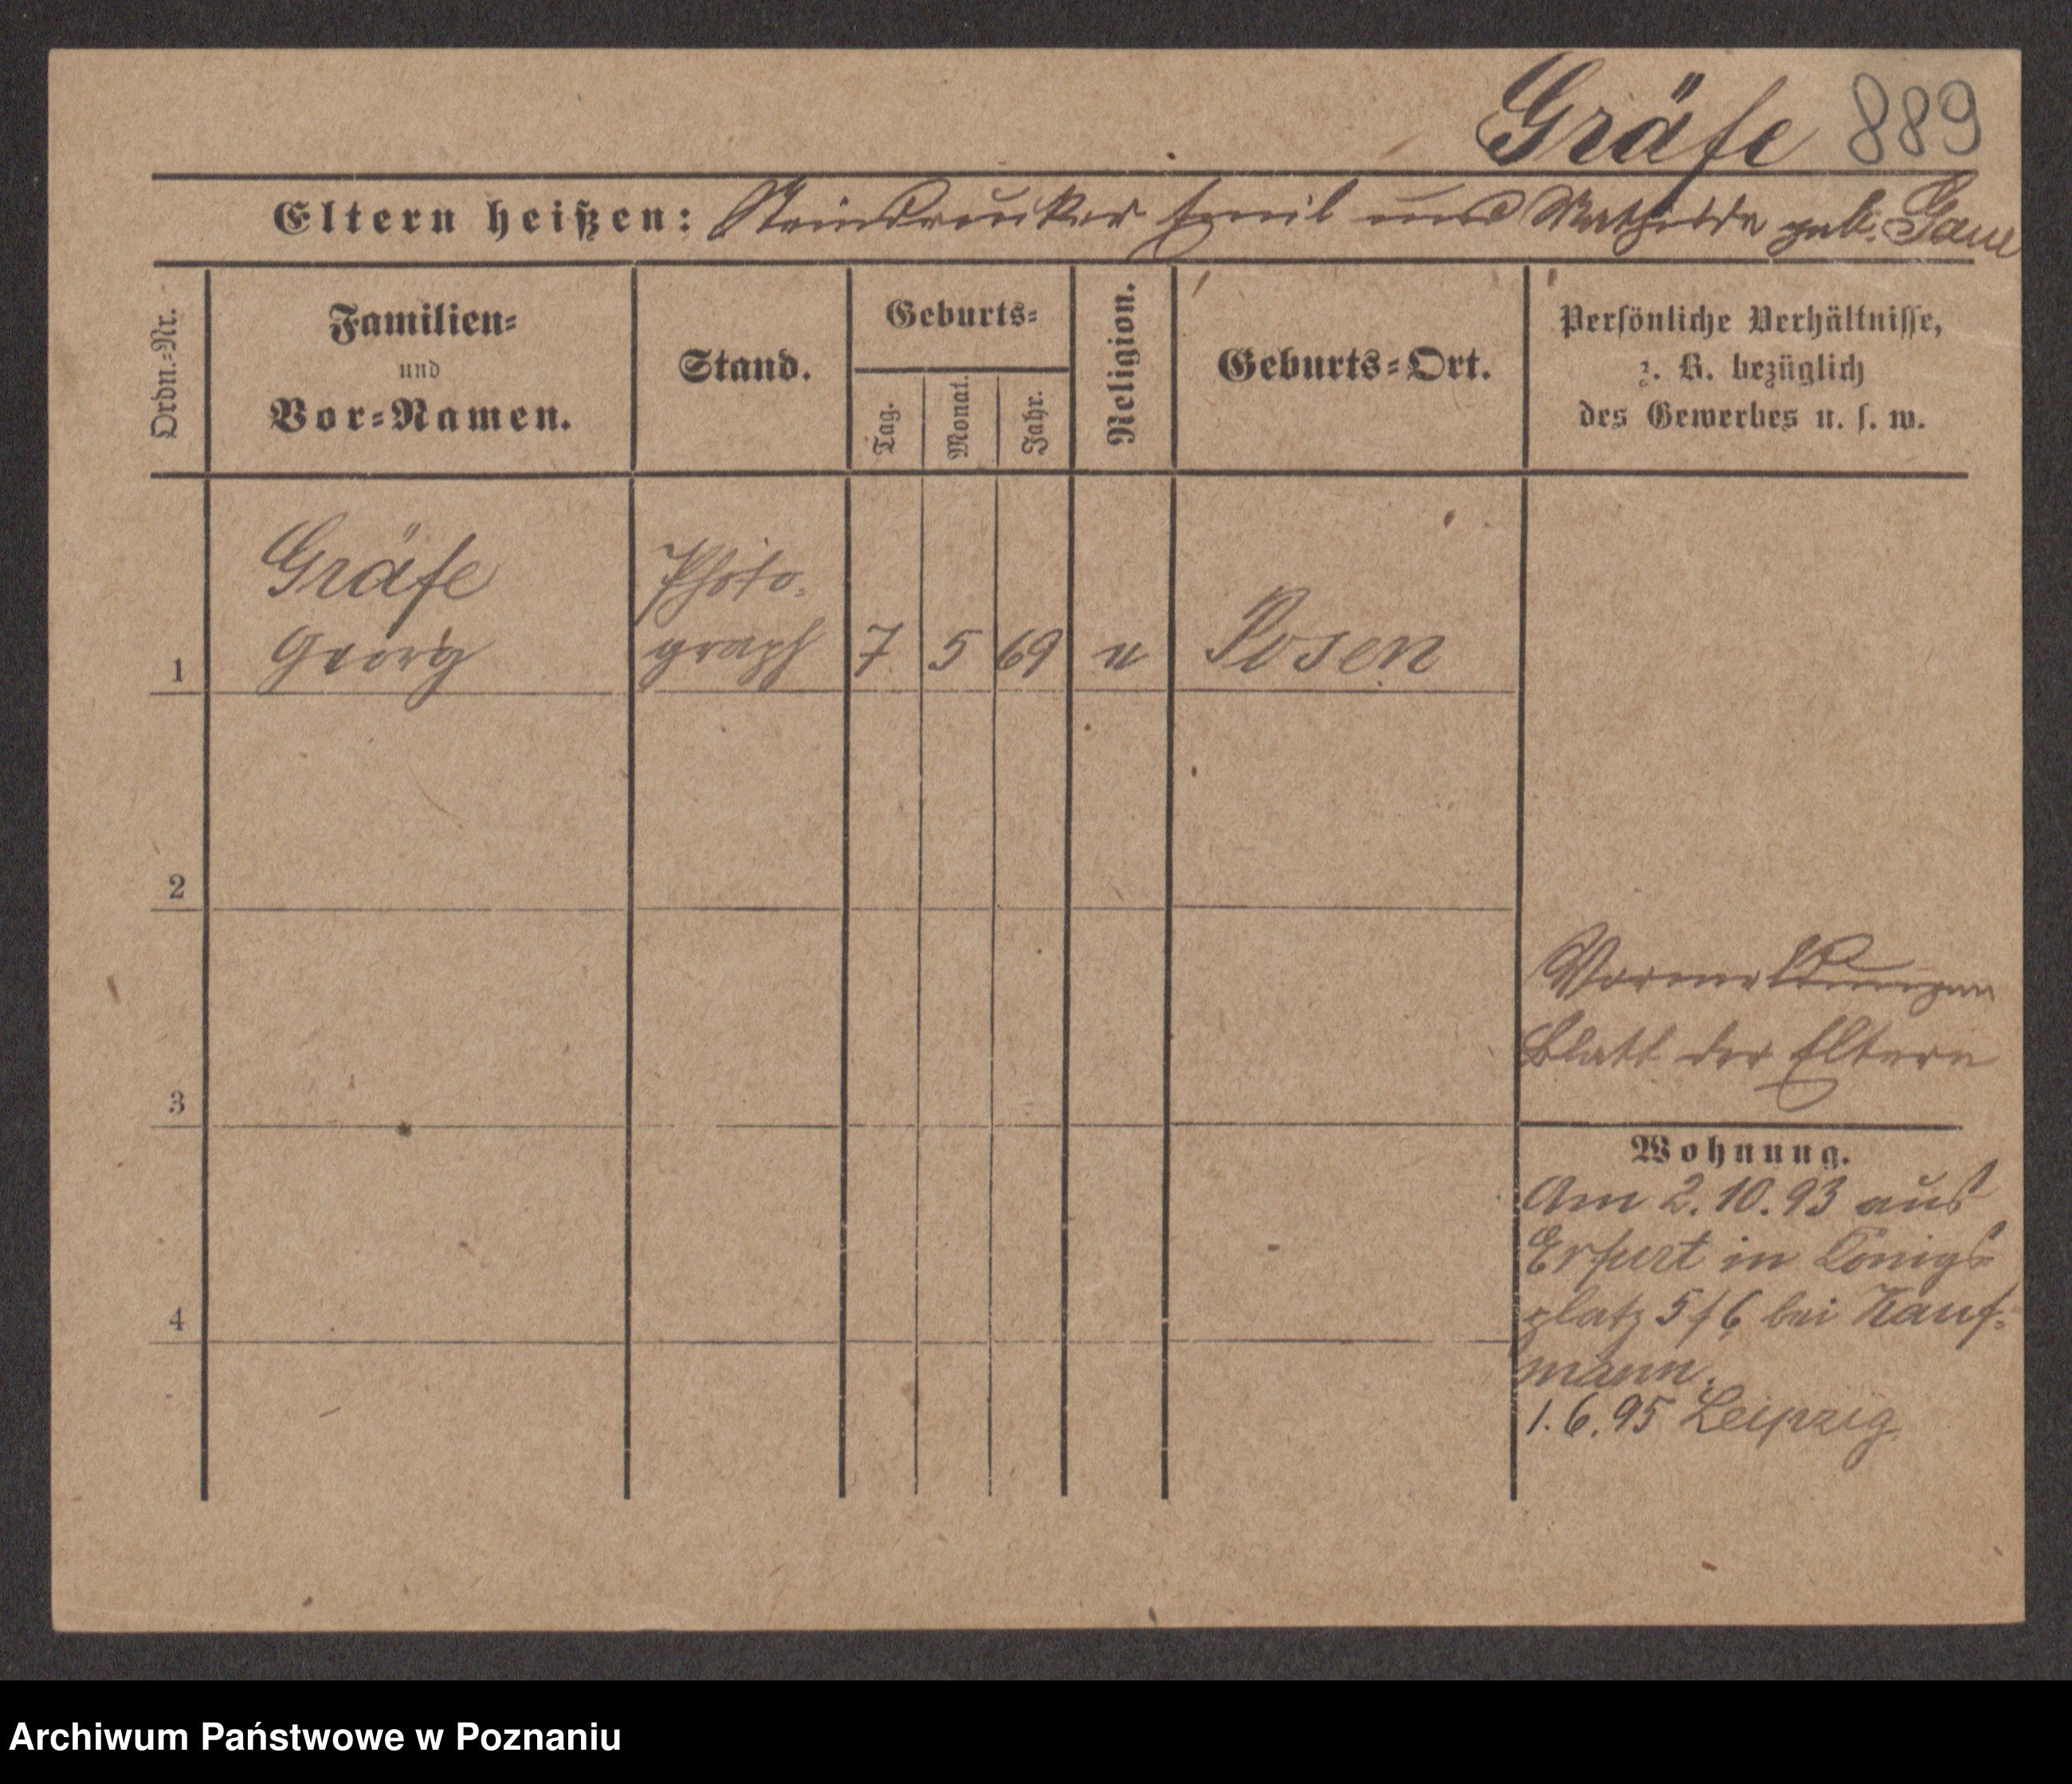 Gräfe 889
Eltern heißen: Steindrucker Emil und Mathilde geb. Gaue
Ordn.-Nr.
Familien-
und
Vor-Namen.
Stand.
Geburts-
Tag.
Monat.
Jahr.
Religion.
Geburts-Ort.
Persönliche Verhältnisse,
z. B. bezüglich
des Gewerbes u. s. w.
Gräfe
Georg
Photo-
graph
1
7
5
69
u
Posen
2
3
4
Vormeldungen
Blatt der Eltern
Wohnung.
Am 2.10.93 aus
Erfurt in Königs
platz 5/6 bei Kauf-
mann.
1.6.95 Leipzig
Archiwum Państwowe w Poznaniu